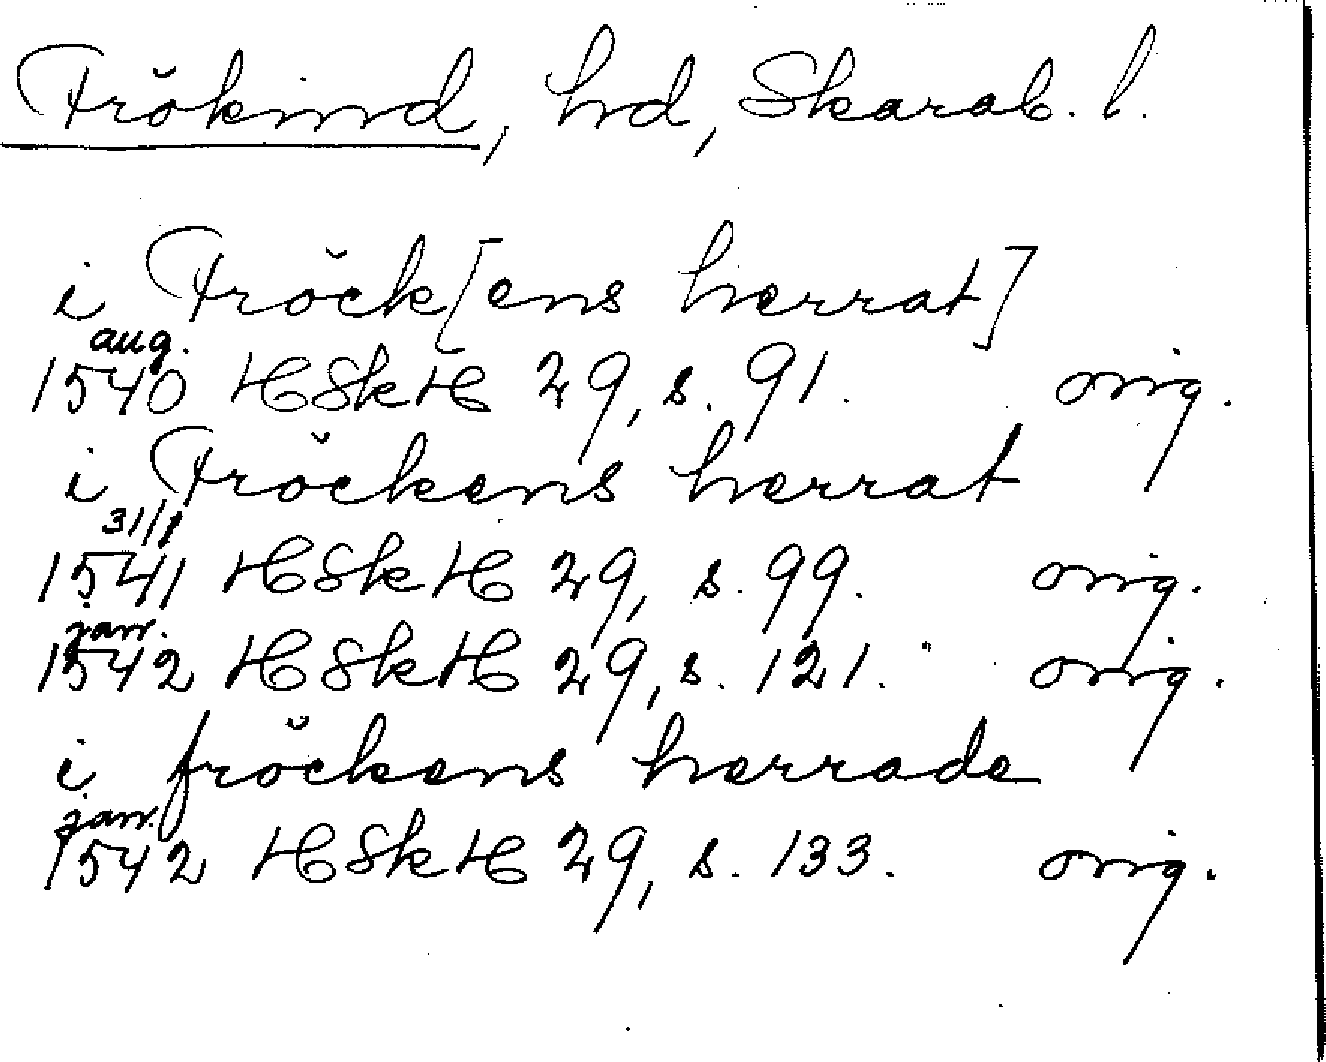 Frökind, hd, Skarab. l.
i Fröck[ens herrat]
aug.
1540 HSkH 29, s. 91. orig.
i Fröckens herrat
31/1
1541 HSkH 29, s. 99. orig.
jan.
1542 HSkH 29, s. 121. orig.
i fröckens herrade
jan.
1542 HSkH 29, s. 133. orig.